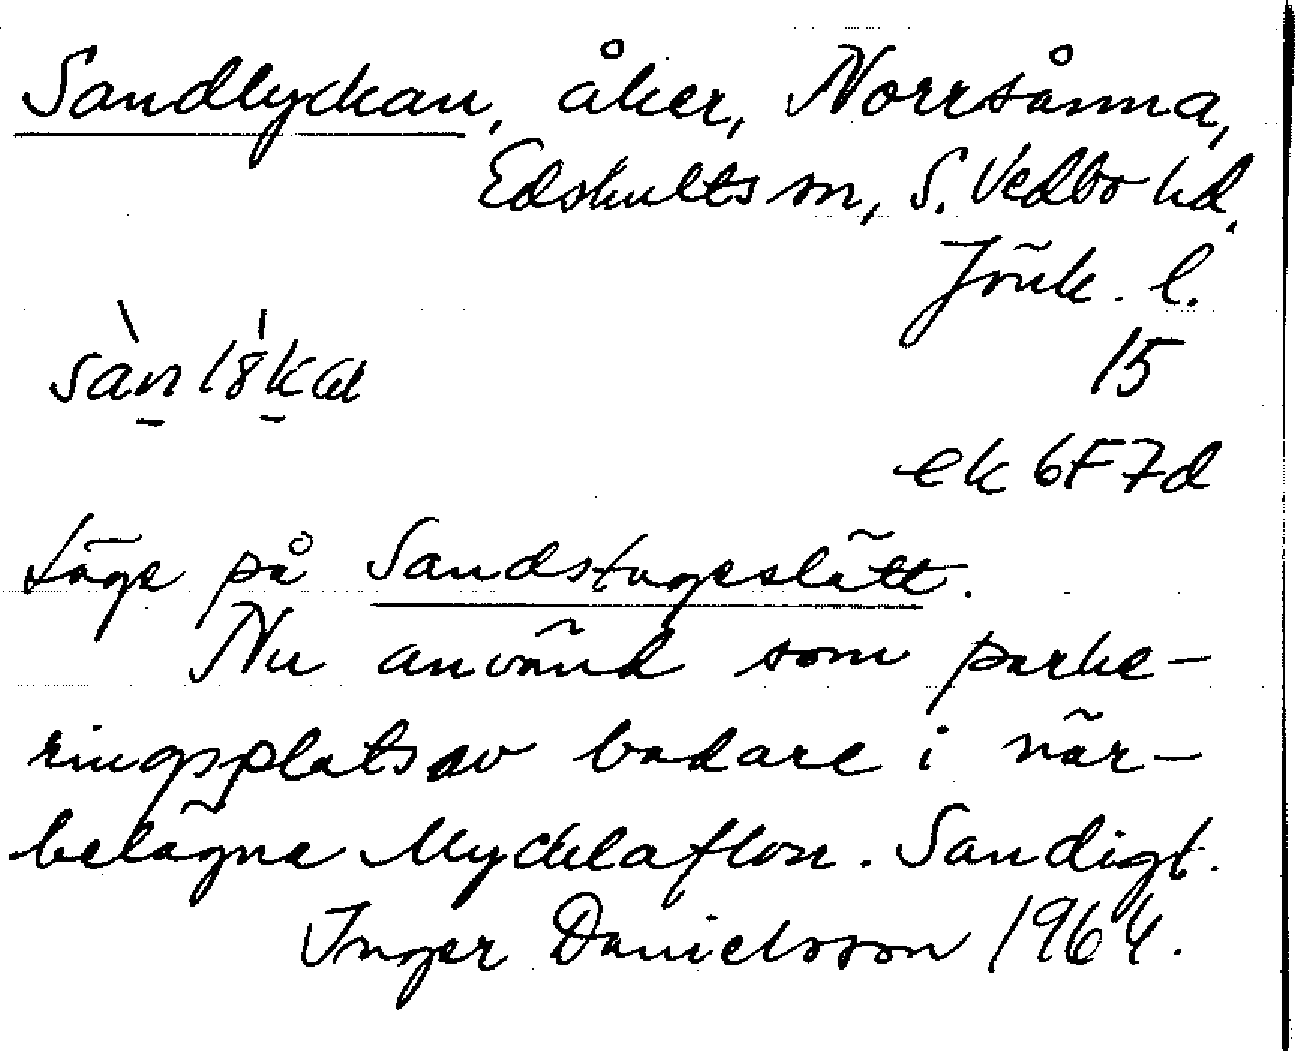 Sandlyckan, åker, Norrsånna,
Edshults sn, S. Vedbo hd,
Jönk. l.
15
ek 6F7d
Läge på Sandstugeslätt.
Nu använd som parke-
ringsplats av badare i när-
belägna Mycklaflon. Sandigt.
Inger Danielsson 1964.